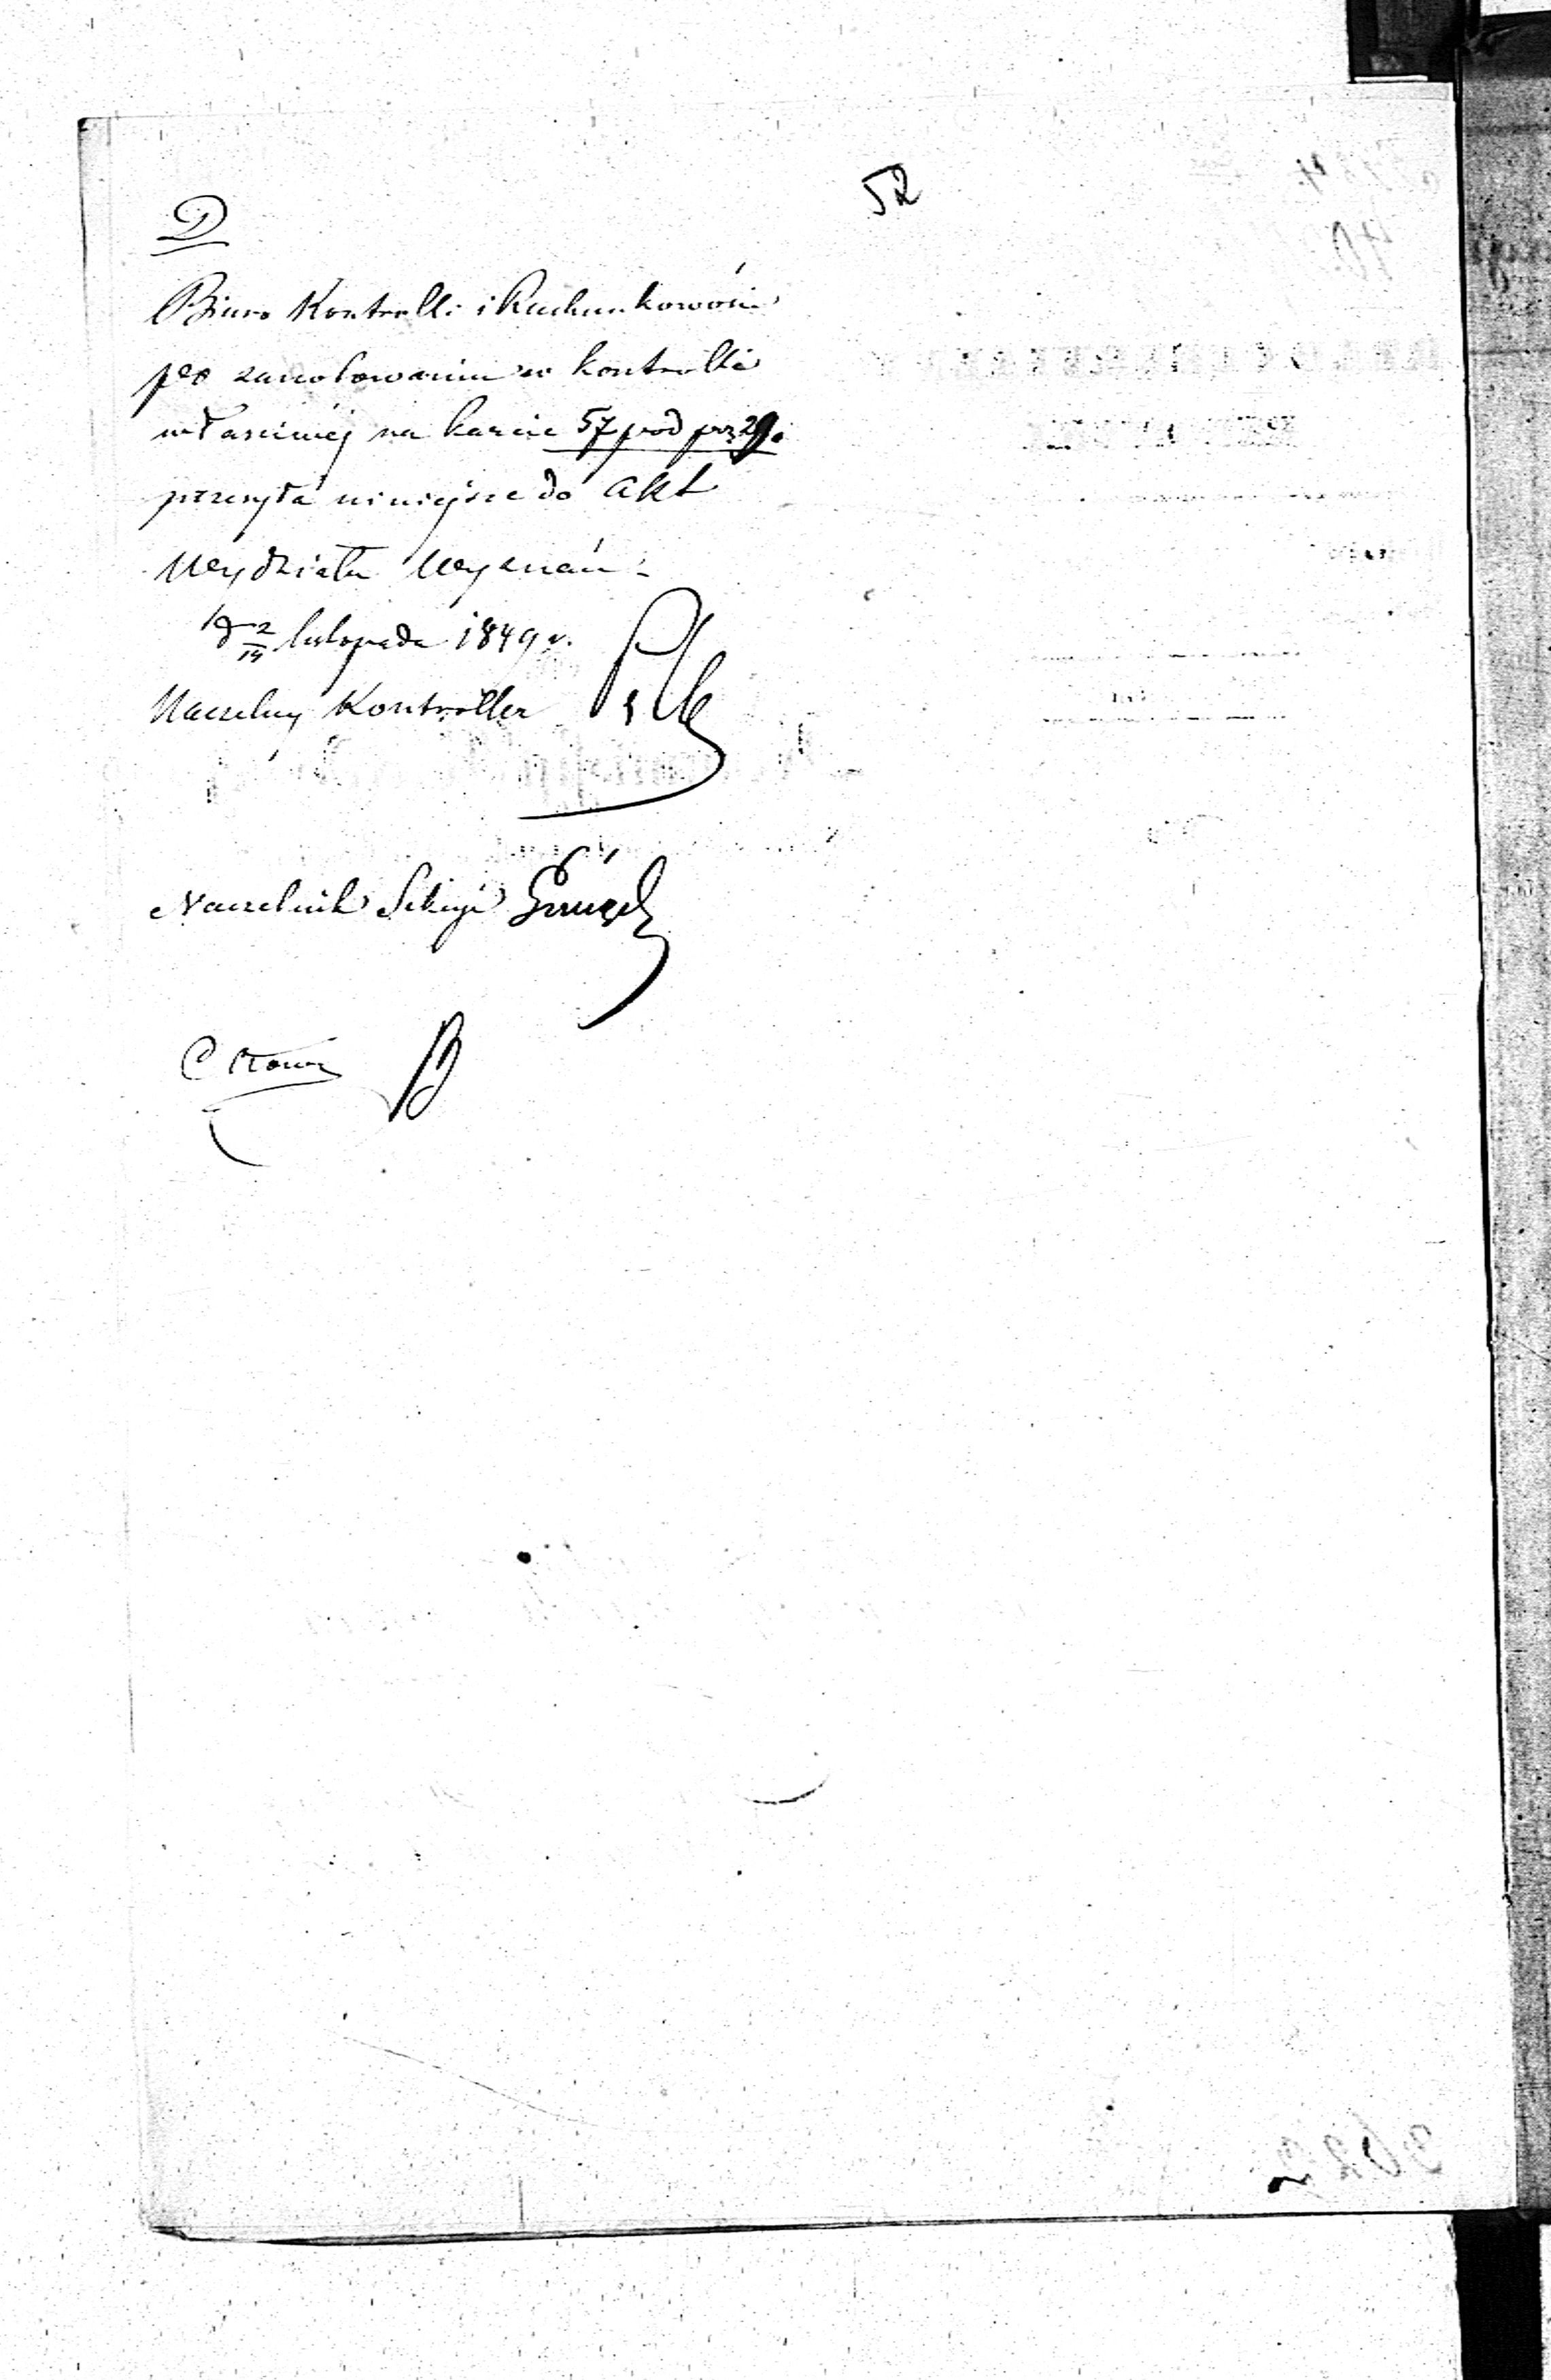 52
D
Biuro Kontrolli i Rachunkowości
po zanotowaniu w kontrolli
właściwéj na karcie 57 pod poz 29.
przesyła niniejsze do Akt
Wydziału Wyznań
d 2/14 listopada 1849 r.
Naczelny Kontroller
Naczelnik Sekcyi